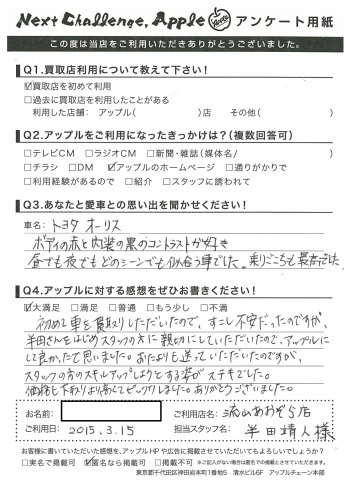 Next Challenge, Apple アンケート用紙
この度は当店をご利用いただきありがとうございました。
Q1.買取店利用について教えて下さい!
☑買取店を初めて利用
□過去に買取店を利用したことがある
利用した店舗: アップル( )店 その他( )
Q2.アップルをご利用になったきっかけは?(複数回答可)
□テレビCM □ラジオCM □新聞・雑誌(媒体名/ )
□チラシ □DM ☑アップルのホームページ □通りがかりで
□利用経験があるので □紹介 □スタッフに誘われて
Q3.あなたと愛車との思い出を聞かせください!
車名: トヨタ オーリス
ボディの赤と内装の黒のコントラストが好き
昼でも夜でもどのシーンでも似合う車でした。乗りごこちも最高でした
Q4.アップルに対する感想をぜひお書きください!
☑大満足 □満足 □普通 □もう少し □不満
初めて車を買取りしていただいたので、すこし不安だったのですが、
半田さんをはじめスタッフの方に親切にしていただいたので、アップルに
して良かったと思いました。おたよりも送っていただいたのですが、
スタッフの方のスキルアップしようとする姿がステキでした。
価格も下取りより高くてビックリしました。ありがとうございました。
お名前:
ご利用店名: 流山おおぞら店
ご利用日: 2015.3.15
担当スタッフ名: 半田靖人様
お客様に書いていただいた感想を、アップルHPや広告に掲載させていただいてもよろしいでしょうか?
□実名で掲載可 ☑匿名なら掲載可 □掲載不可 ※ご記入がない場合は匿名での掲載とさせていただきます。
東京都千代田区神田岩本町1番地5 清水ビル6F アップルチェーン本部